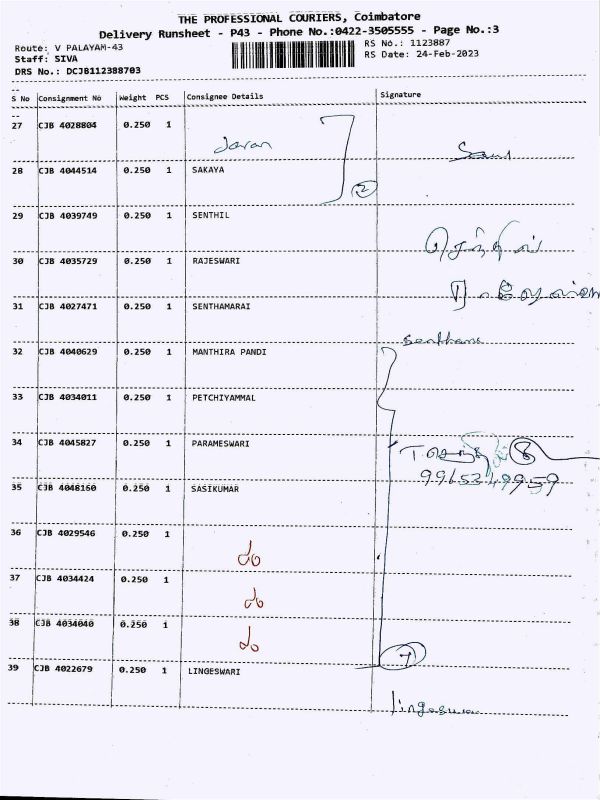 THE PROFESSIONAL COURIERS, Coimbatore
Delivery Runsheet - P43 - Phone No.:0422-3505555 - Page No.:3
Route: V PALAYAM-43
RS No.: 1123887
Staff: SIVA
RS Date: 24-Feb-2023
DRS No.: DCJB112388703
S No Consignment No Weight PCS Consignee Details Signature
27 CJB 4028804 0.250 1
28 CJB 4044514 0.250 1 SAKAYA
2
29 CJB 4039749 0.250 1 SENTHIL
செந்தில்
30 CJB 4035729 0.250 1 RAJESWARI
31 CJB 4027471 0.250 1 SENTHAMARAI
32 CJB 4040629 0.250 1 MANTHIRA PANDI
33 CJB 4034011 0.250 1 PETCHIYAMMAL
34 CJB 4045827 0.250 1 PARAMESWARI
35 CJB 4048160 0.250 1 SASIKUMAR
36 CJB 4029546 0.250 1
37 CJB 4034424 0.250 1
38 CJB 4034040 0.250 1
7
39 CJB 4022679 0.250 1 LINGESWARI